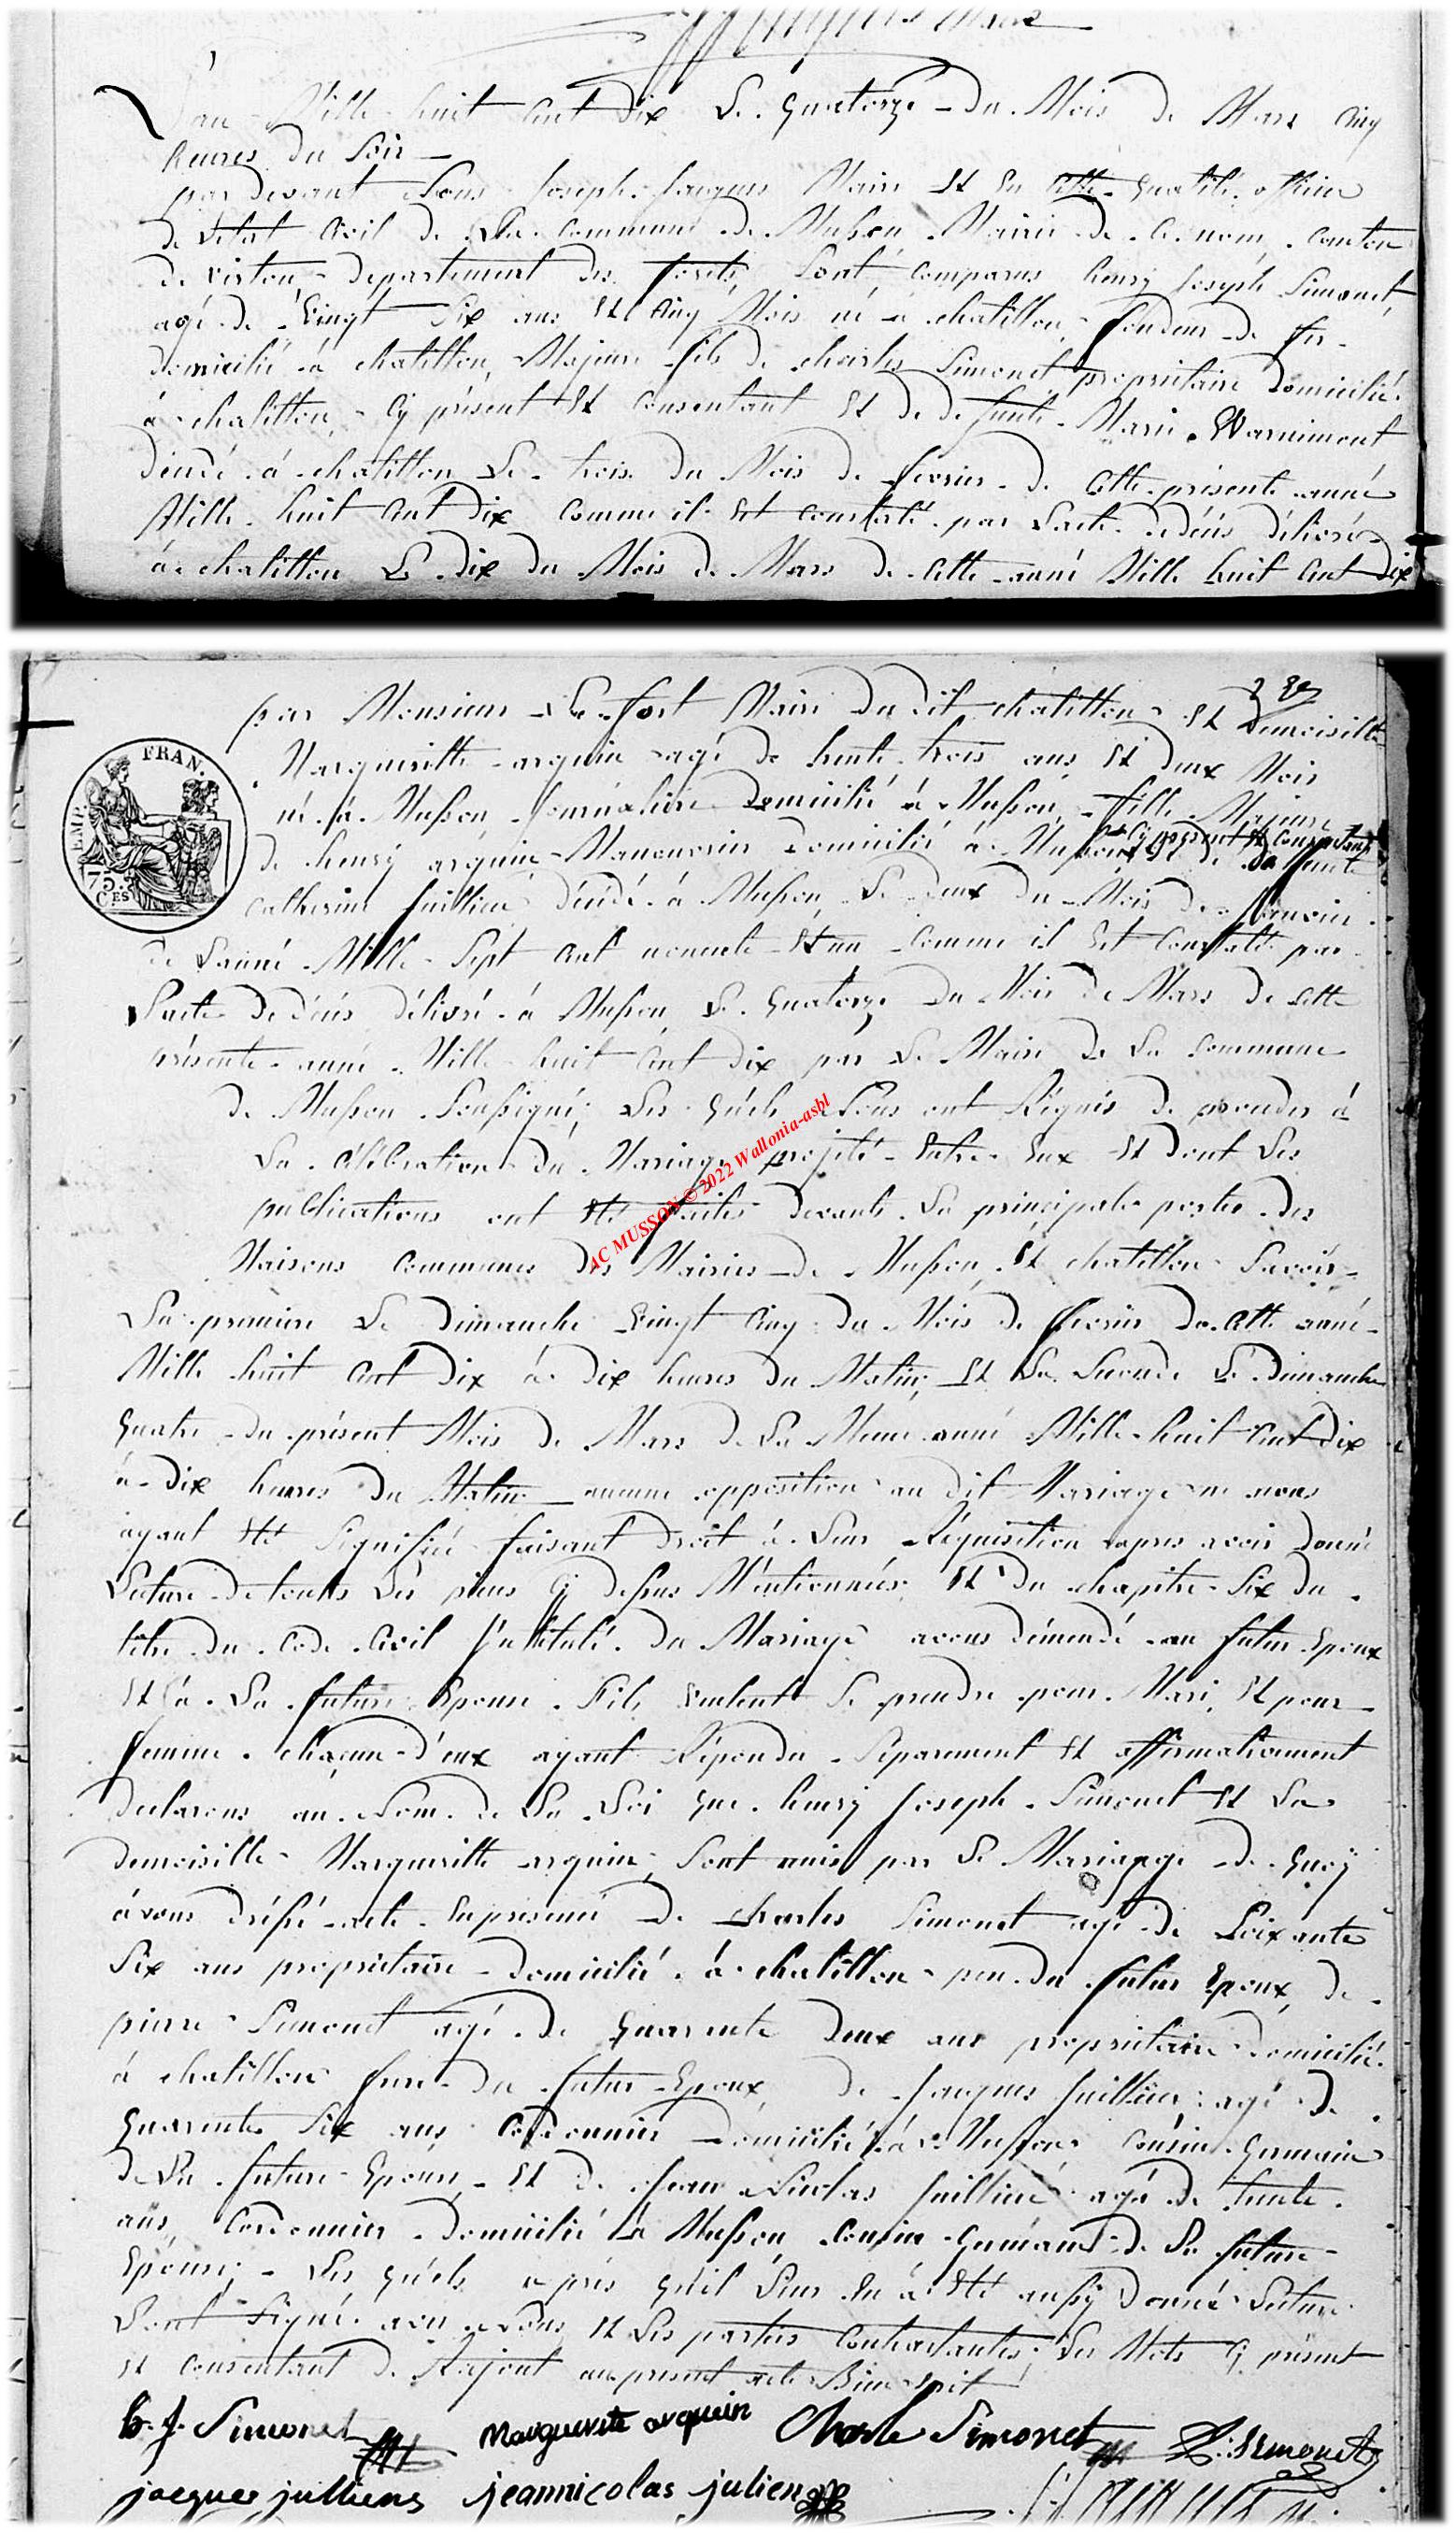 L'an Mille huit cent dix Le quatorze du Mois de Mars cinq
heures du Soir
par devant Nous Joseph Jacques Maire Et En Cette qualité officier
de L'etat Civil de La Commune de Musson Mairie de Ce nom, Canton
de virton, departement des forêts, Sont comparus henry Joseph Simonet,
agé de Vingt Six ans Et Cinq Mois né à chatillon, fondeur de fer
domicilié à chatillon, Majeur fils de charles Simonet propriétaire domicilié
à chatillon, Cy présent Et Consentant Et de defunte Marie Warnimont
décédé à chatillon Le trois du Mois de fevrier de Cette présente année
Mille huit Cent Dix Comme il Est Constaté par L'acte de décés délivré
à chatillon Le dix du Mois de Mars de Cette année Mille huit Cent dix
par Monsieur Le fort Maire du dit chatillon Et Demoiselle
Margueritte arquin agé de trente trois ans Et deux Mois
né à Musson Journalière Domicilié à Musson, fille Majeure
de henry arquin Manouvrier domicilié à Musson Cy présent Et Consentant Et de defunte
Catherine Juillien décédé à Musson Le deux du Mois de Janvier
de L'année Mille Sept Cent nonente Et un Comme il Est Constaté par
L'acte de décés délivré à Musson Le quatorze du Mois de Mars de Cette
présente année Mille huit Cent dix par Le Maire de La Commune
de Musson Soussigné; Les quels Nous ont Réquis de proceder à
La Célébration du Mariage projété Entre Eux Et dont Les
publications ont Eté faites devant La principale porte des
Maisons Communes des Mairies de Musson Et chatillon Savoir
La premiere Le Dimanche Vingt Cinq du Mois de fevrier de Cette année
Mille huit Cent dix à dix heures du Matin, Et La Seconde Le Dimanche
quatre du présent Mois de Mars de La Même année Mille huit Cent dix
à dix heures du Matin aucune opposition au dit Mariage ne nous
ayant Eté Signifiée faisant Droit à Leur Réquisition apres avoir donné
Lecture de toutes Les pieces Cy dessus Mentionnées Et du chapitre Six du
titre du Code Civil Intitulé du Mariage avons démendé au futur Epoux
Et à La future Epouse S'ils veulent Se prendre pour Mari Et pour
femme, chaçun d'eux ayant Répondu Séparement Et affirmativement
declarons au Nom de La Loi que henry Joseph Simonet Et La
demoiselle Margueritte arquin, Sont unis par Le Mariage de quoy
avons dréssé acte En présence De charles Simonet agé de Soixante
Six ans propriétaire domicilié à chatillon pere du futur Epoux, de
pierre Simonet agé de quarante Deux ans propriétaire domicilié
à chatillon frere du futur Epoux de Jacques Juillien agé de
quarante Six ans Cordonnier domicilié à Musson Cousin Germain
de La future Epouse, Et de Jean Nicolas Juillien agé de trente
ans, Cordonnier domicilié à Musson Cousin Germain de La future
Epouse; Les quels apres qu'il Leur En à Eté aussy Donné Lecture
L'ont Signé avec Nous Et Les parties Contractantes; Les Mots Cy présent
Et Consentant de Rajout au présent acte
h. J. Simonet Marguerite arquin Charle Simonet P. Simonet
jacques julliens jeannicolas julien
FRAN.
EMP.
75.
CES
AC MUSSON © 2022 Wallonia-asbl